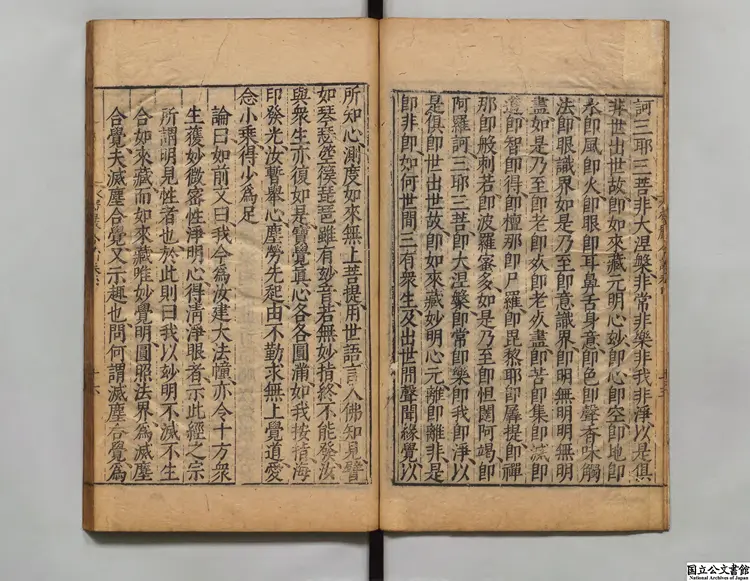 訶三耶三菩非大涅槃非常非樂非我非淨以是俱
非世出世故即如來藏元明心妙即心即空即地即
水即風即火即眼即耳鼻舌身意即色即聲香味觸
法即眼識界如是乃至即意識界即明無明明無明
盡如是乃至即老即死即老死盡即苦即集即滅即
道即智即得即檀那即尸羅即毘梨耶即羼提即禪
那即般剌若即波羅蜜多如是乃至即怛闥阿竭即
阿羅訶三耶三菩即大涅槃即常即樂即我即淨以
是俱即世出世故即如來藏妙明心元離即離非是
即非即如何世間三有衆生及出世間聲聞緣覺以
所知心測度如來無上菩提用世語言入佛知見譬
如琴瑟箜篌琵琶雖有妙音若無妙指終不能發汝
與衆生亦復如是寶覺真心各各圓滿如我按指海
印發光汝暫舉心塵勞先起由不勤求無上覺道愛
念小乘得少為足
論曰如前又曰我今為汝建大法幢亦令十方衆
生獲妙微密性淨明心得清淨眼者示此經之宗
所謂明見性者也於此則曰我以妙明不滅不生
合如來藏而如來藏唯妙覺明圓照法界為滅塵
合覺夫滅塵合覺又示趣也問何謂滅塵合覺為
国立公文書館
National Archives of Japan